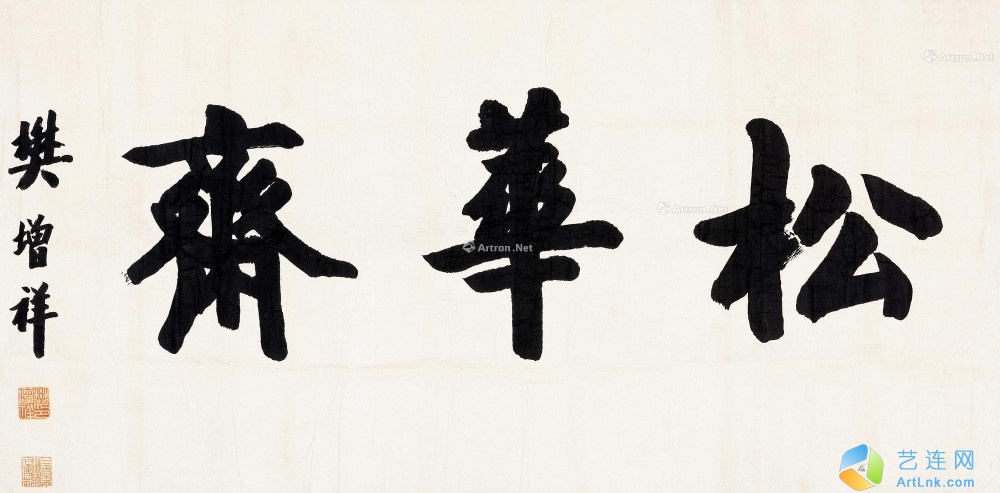 松華齋
樊增祥
Artron.Net
Artron.Net
Artron.Net
艺连网
ArtLnk.com